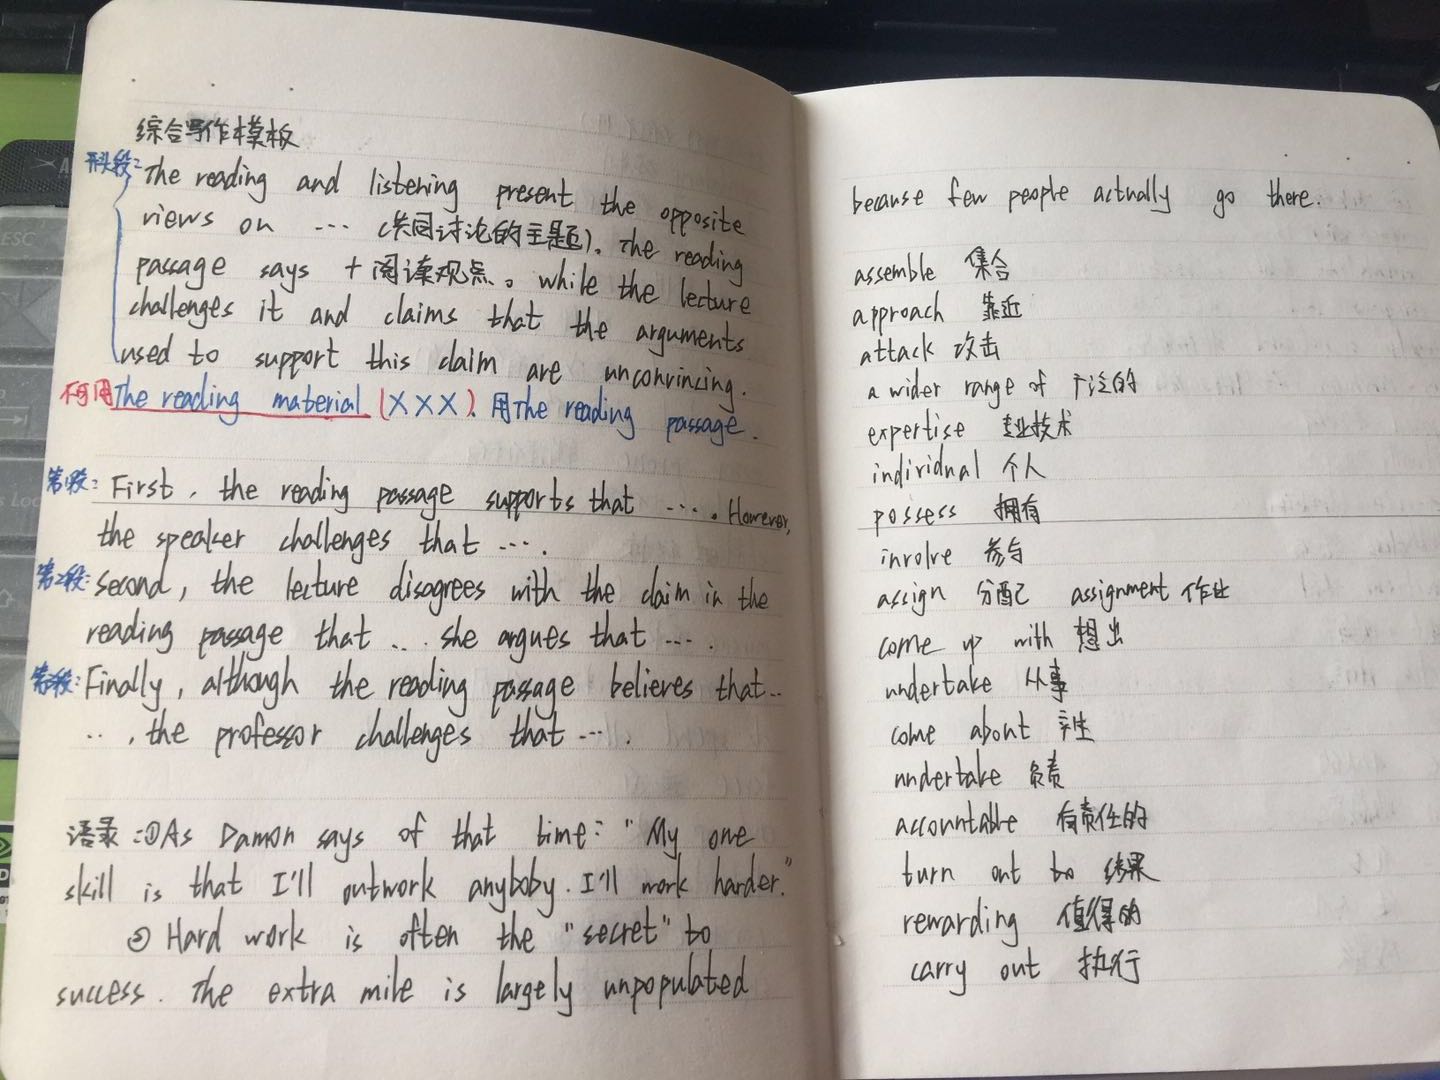 综合写作模板
开头段: The reading and listening present the opposite
views on ... (共同讨论的主题). The reading
passage says + 阅读观点。while the lecture
challenges it and claims that the arguments
used to support this claim are unconvincing.
不可用The reading material (XXX). 用The reading passage.
第1段: First, the reading passage supports that .... However,
the speaker challenges that ....
第2段: Second, the lecture disagrees with the claim in the
reading passage that ... she argues that ....
第3段: Finally, although the reading passage believes that..
.., the professor challenges that ....
语录:①As Damon says of that time: "My one
skill is that I'll outwork anyboby. I'll work harder."
② Hard work is often the "secret" to
success. The extra mile is largely unpopulated
because few people actually go there.
assemble 集合
approach 靠近
attack 攻击
a wider range of 广泛的
expertise 专业技术
individual 个人
possess 拥有
involve 参与
assign 分配 assignment 作业
come up with 想出
undertake 从事
come about 产生
undertake 负责
accountable 有责任的
turn out to 结果
rewarding 值得的
carry out 执行